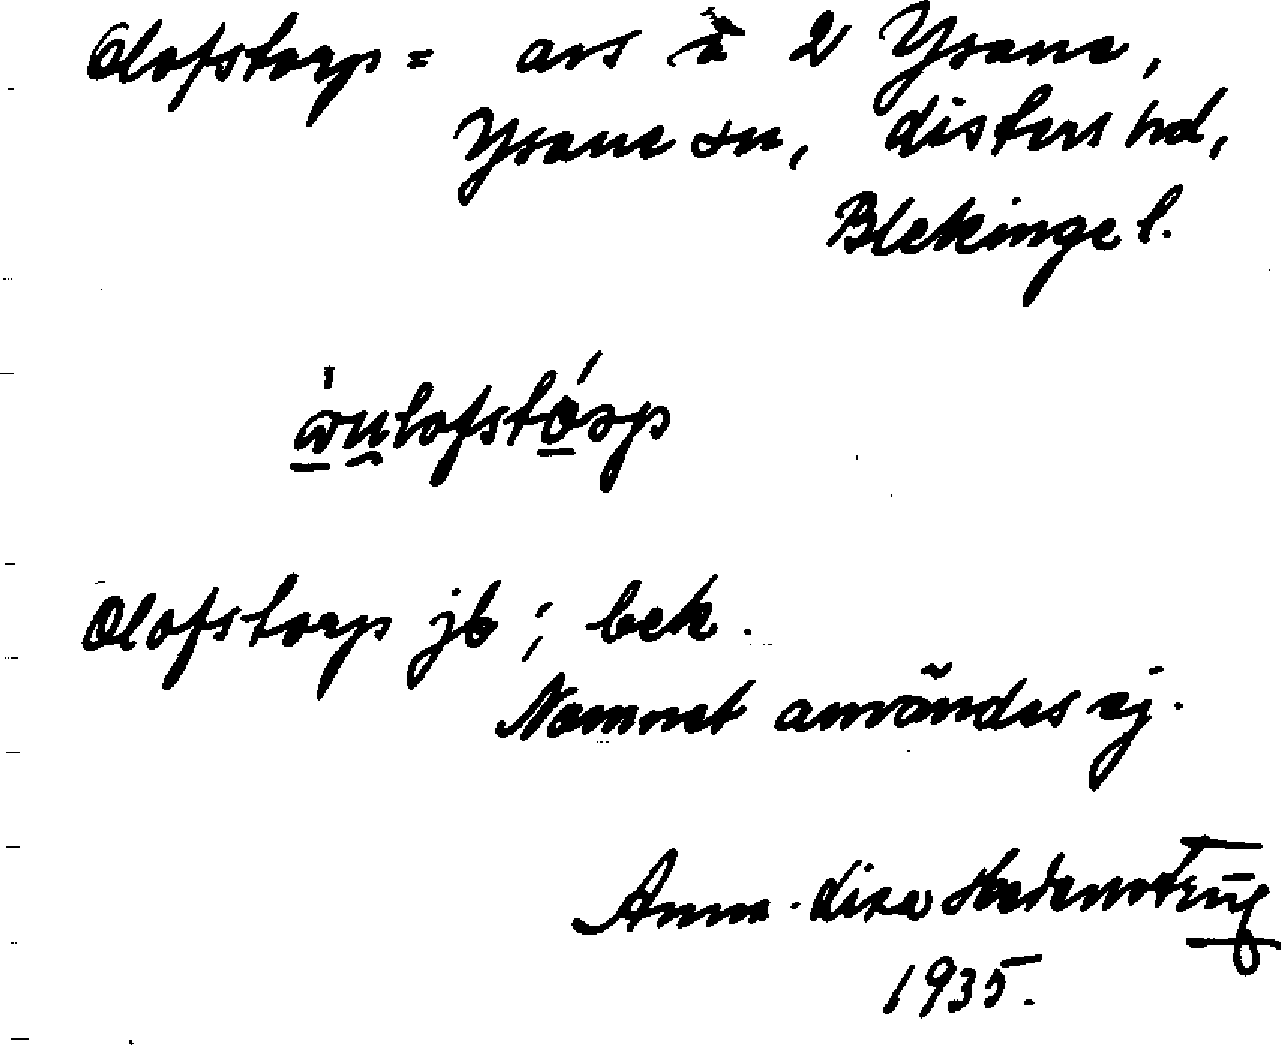 Olofstorp = avs å 2 Ysane,
Ysane sn, Listers hd,
Blekinge l.
ωu̯lofstórp
Olofstorp jb; bek.
Namnet användes ej.
Anna-Lisa
1935.